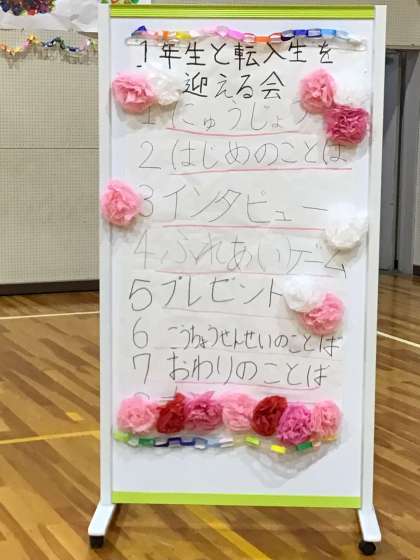 1年生と転入生を
迎える会
1 にゅうじょう
2 はじめのことば
3 インタビュー
4 ふれあいゲーム
5 プレゼント
6 こうちょうせんせいのことば
7 おわりのことば